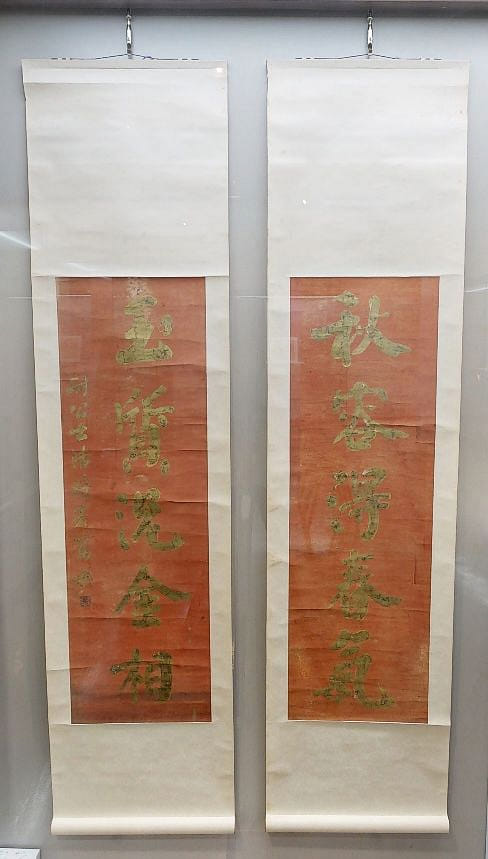 秋容得春氣
玉質況金相